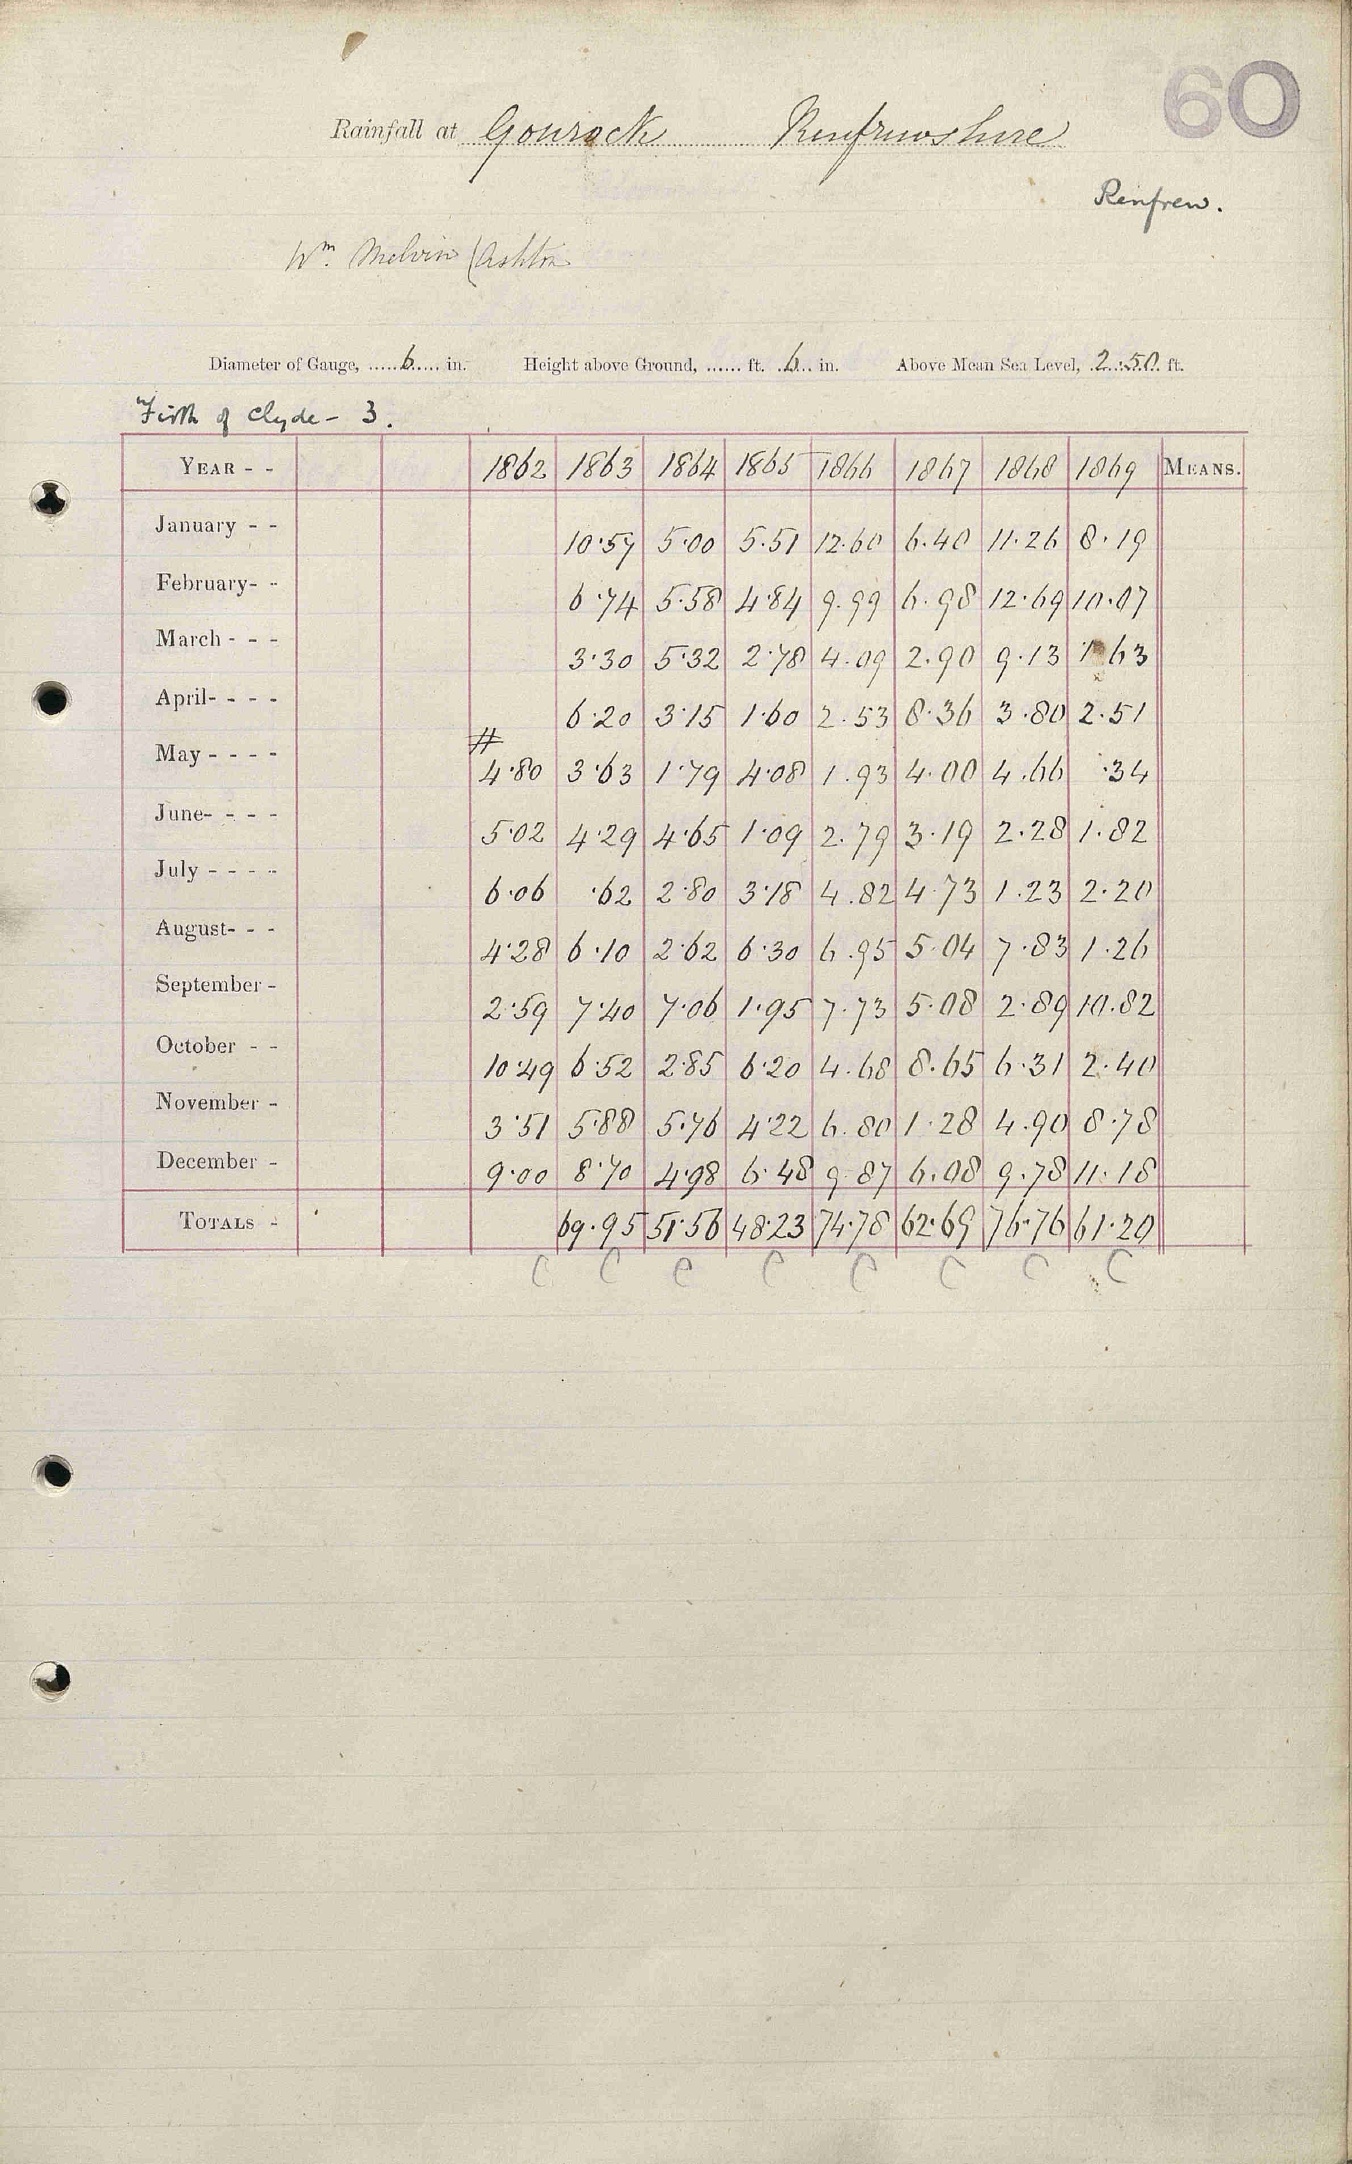 60
Rainfall at Gourock Renfrewshire
Renfrew.
Wm. Melvin (Ashton
Diameter of Gauge, ......6...... in. Height above Ground, ...... ft. ..6... in. Above Mean Sea Level, .2.50. ft.
Firth of Clyde - 3.
YEAR - - 1862 1863 1864 1865 1866 1867 1868 1869 MEANS.
January - - 10·57 5·00 5·51 12·60 6·40 11·26 8·19
February- - 6·74 5·58 4·84 9·99 6·98 12·69 10·07
March - - - 3·30 5·32 2·78 4·09 2·90 9·13 1·63
April- - - - 6·20 3·15 1·60 2·53 8·36 3·80 2·51
#
May - - - - 4·80 3·63 1·79 4·08 1·93 4·00 4·66 ·34
June- - - - 5·02 4·29 4·65 1·09 2·79 3·19 2·28 1·82
July - - - - 6·06 ·62 2·80 3·18 4·82 4·73 1·23 2·20
August- - - 4·28 6·10 2·62 6·30 6·95 5·04 7·83 1·26
September - 2·59 7·40 7·06 1·95 7·73 5·08 2·89 10·82
October - - 10·49 6·52 2·85 6·20 4·68 8·65 6·31 2·40
November - 3·51 5·88 5·76 4·22 6·80 1·28 4·90 8·78
December - 9·00 8·70 4·98 6·48 9·87 6·08 9·78 11·18
TOTALS - 69·95 51·56 48·23 74·78 62·69 76·76 61·20
C C C C C C C C